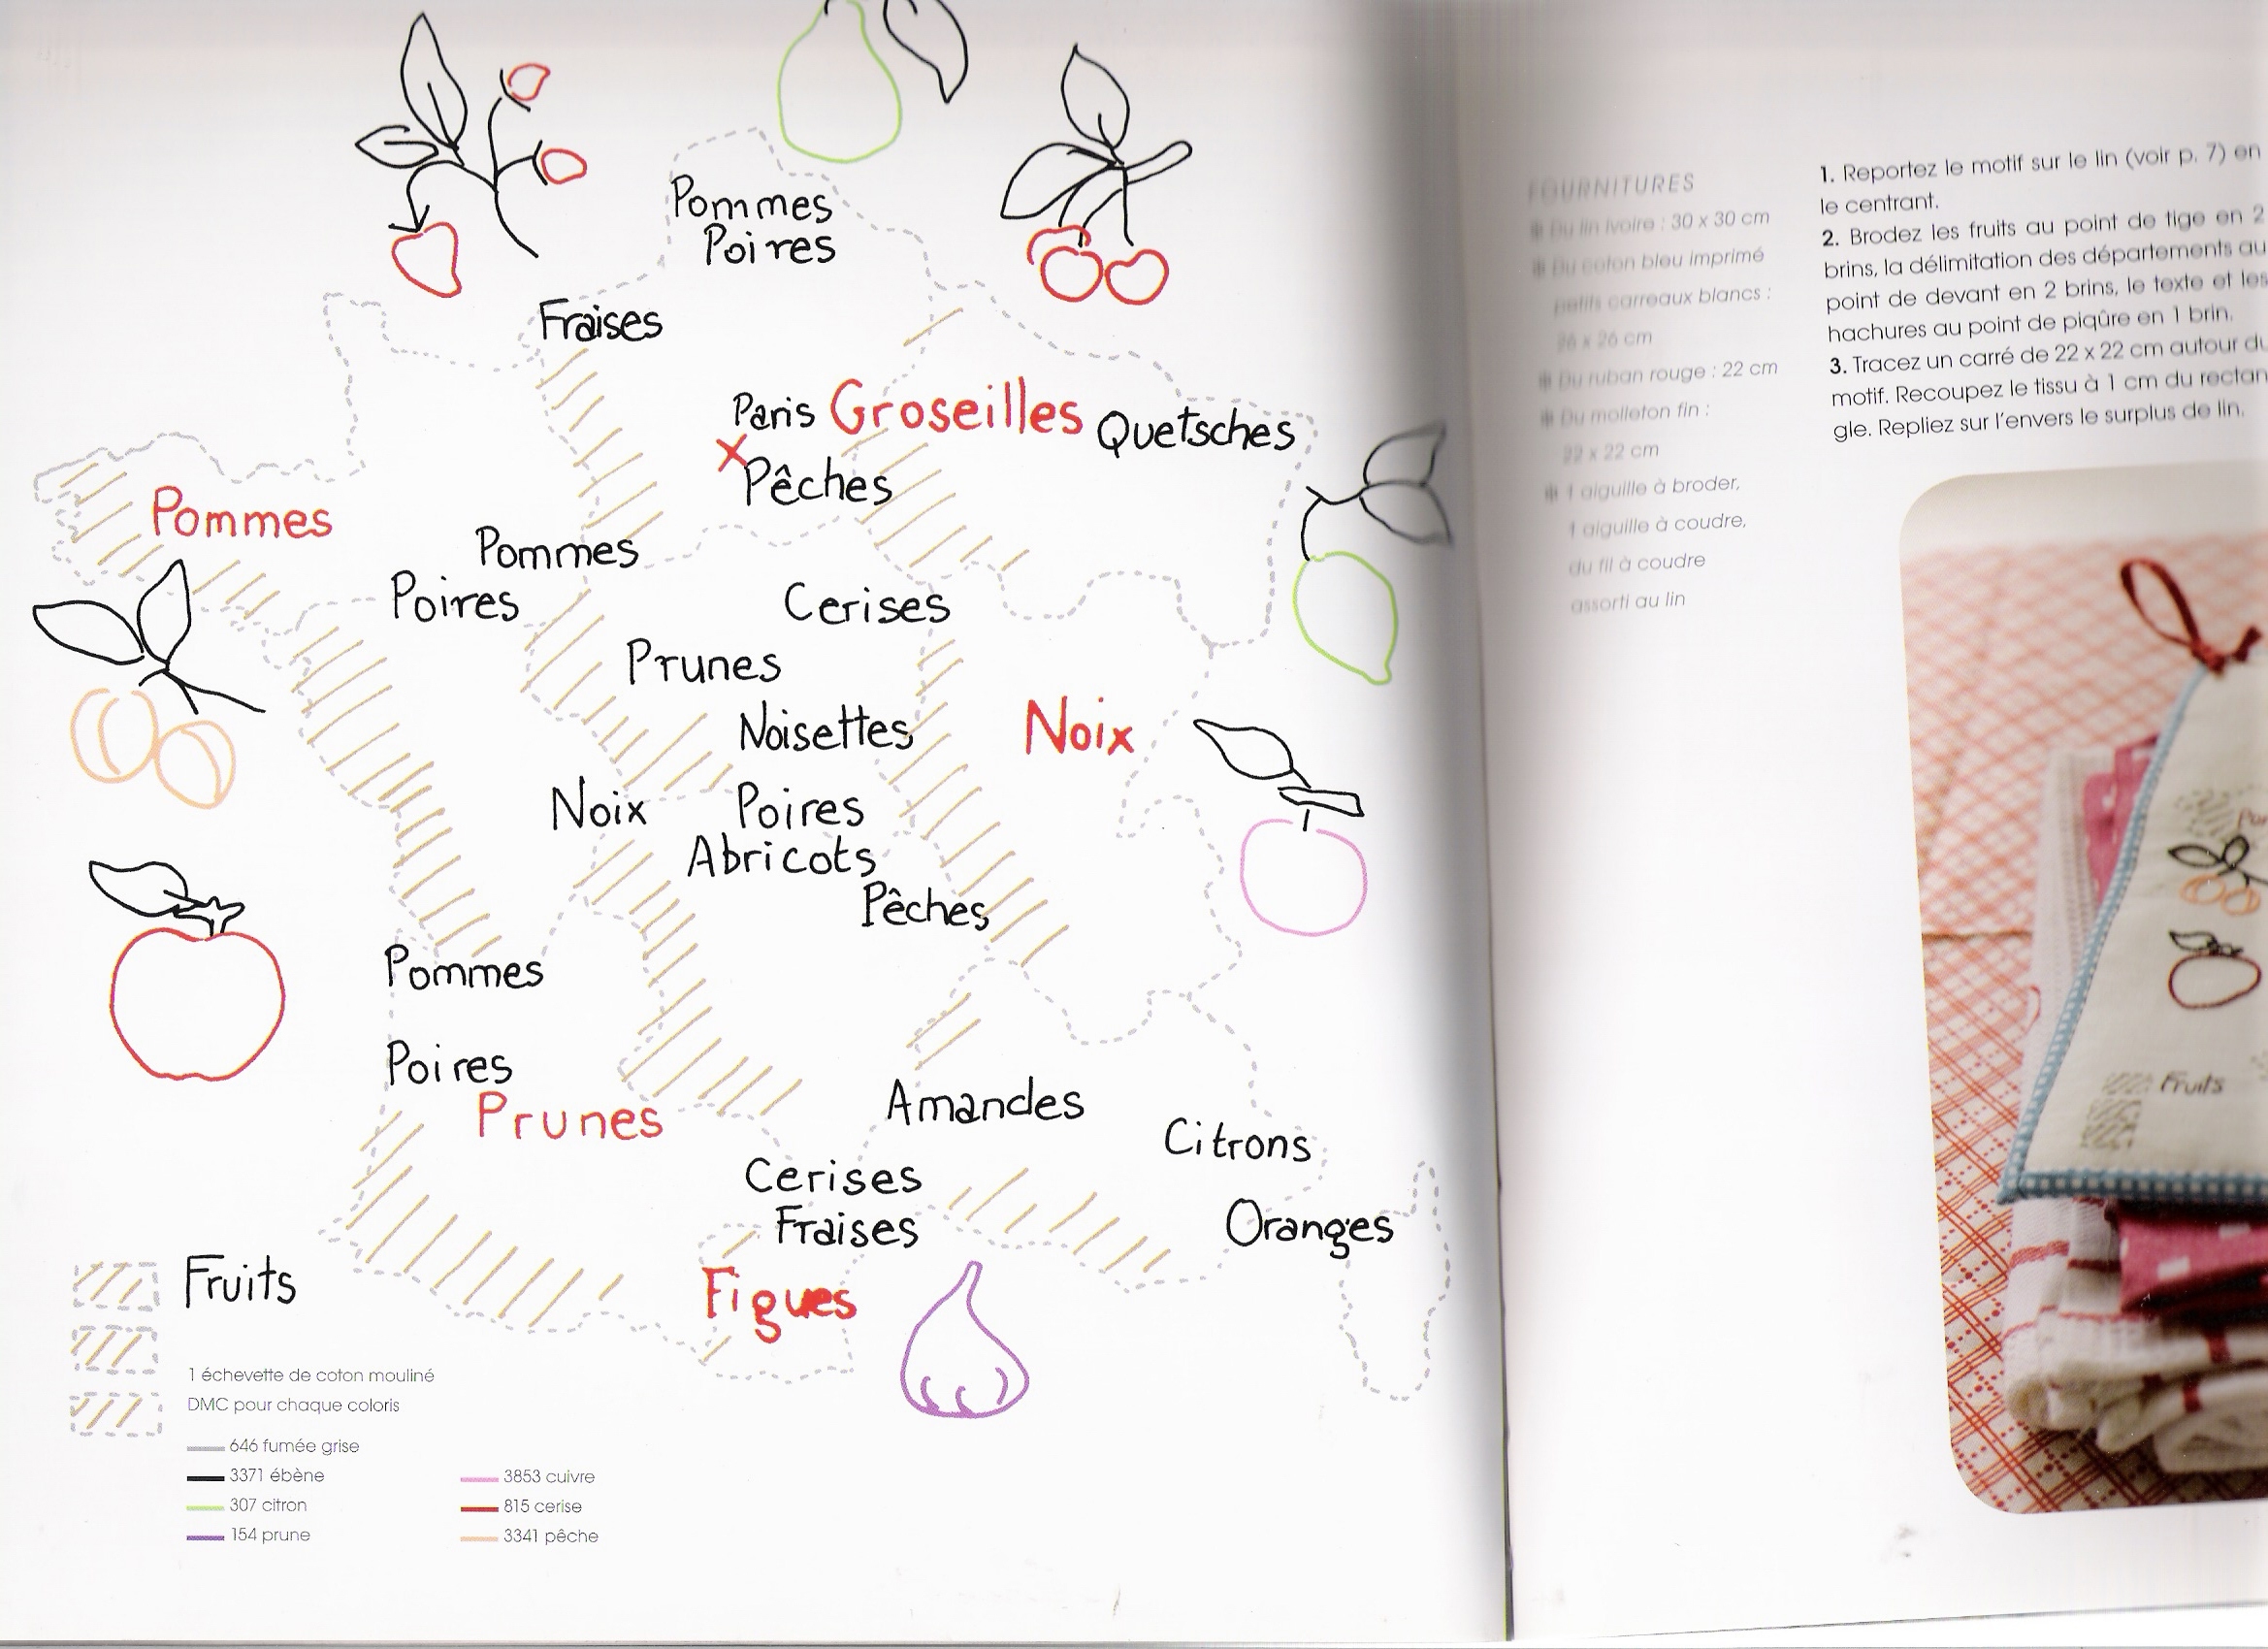 Pommes
Poires
Fraises
Paris Groseilles Quetsches
Pêches
Pommes
Pommes
Poires
Cerises
Prunes
Noisettes
Noix
Noix
Poires
Abricots
Pêches
Pommes
Poires
Prunes
Amandes
Citrons
Cerises
Fraises
Oranges
Figues
Fruits
1 échevette de coton mouliné
DMC pour chaque coloris
646 fumée grise
3371 ébène
307 citron
154 prune
3853 cuivre
815 cerise
3341 pêche
FOURNITURES
Du lin ivoire : 30 x 30 cm
Du coton bleu imprimé
petits carreaux blancs :
26 x 26 cm
Du ruban rouge : 22 cm
Du molleton fin :
22 x 22 cm
1 aiguille à broder,
1 aiguille à coudre,
du fil à coudre
assorti au lin
1. Reportez le motif sur le lin (voir p. 7) en
le centrant.
2. Brodez les fruits au point de tige en 2
brins, la délimitation des départements au
point de devant en 2 brins, le texte et les
hachures au point de piqûre en 1 brin.
3. Tracez un carré de 22 x 22 cm autour du
motif. Recoupez le tissu à 1 cm du rectan
gle. Repliez sur l'envers le surplus de lin.
Fruits